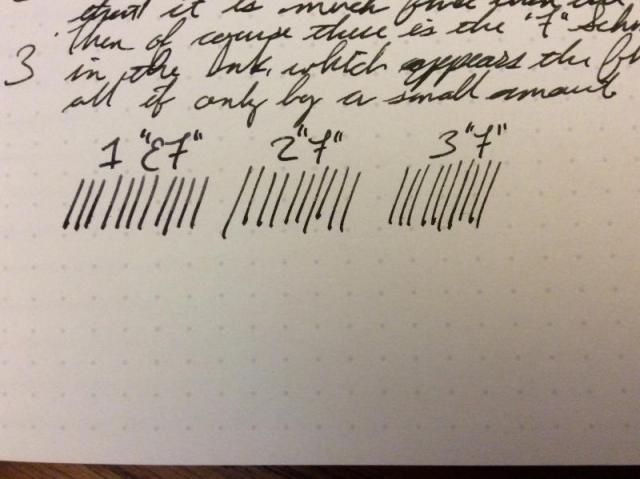 that it is much finer than
Then of course there is the "F"
3 in the Ink, which appears the
all if only by a small amount
1 "EF" 2 "F" 3 "F"